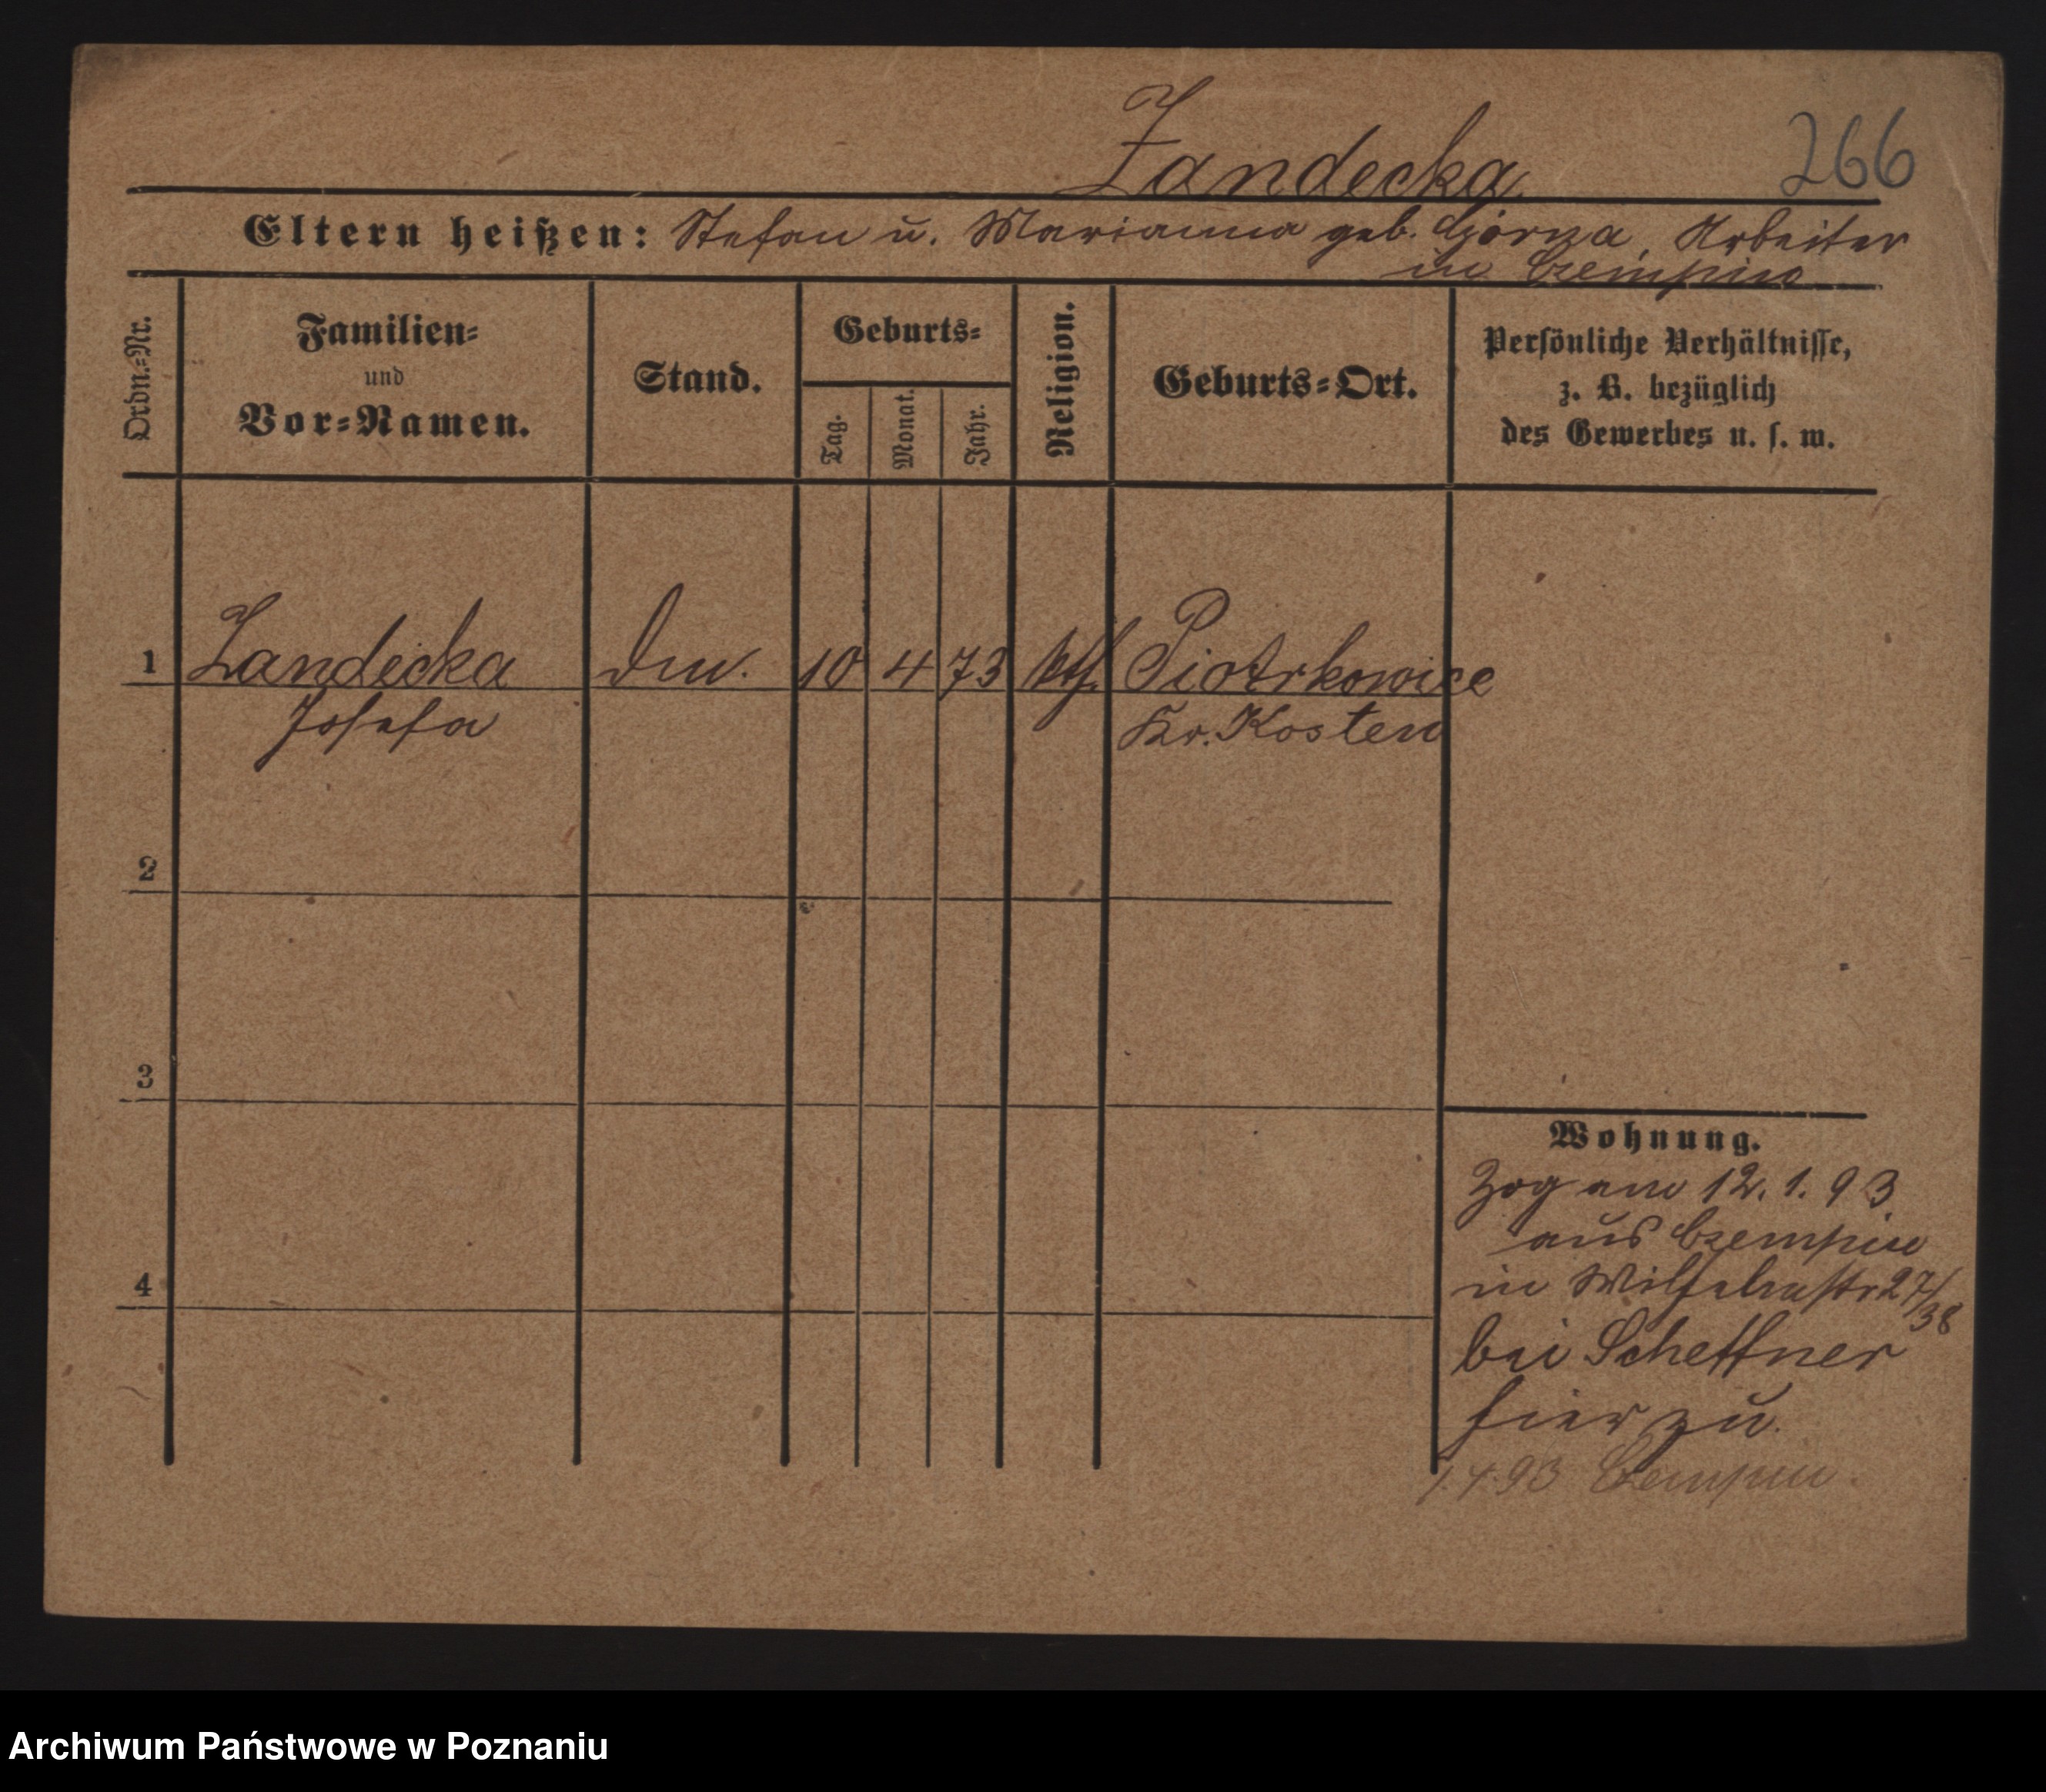 Zandecka
266
Eltern heißen: Stefan u. Marianna geb. Górna, Arbeiter
in Czempin
Ordn.-Nr.
Familien-
und
Vor-Namen.
Stand.
Geburts-
Tag.
Monat.
Jahr.
Religion.
Geburts-Ort.
Persönliche Verhältnisse,
z. B. bezüglich
des Gewerbes u. s. w.
1 Zandecka 10 4 73 kth. Piotrkowice
Josefa Kr. Kosten
2
3
4
Wohnung.
Zog am 12. 1. 93
aus Czempin
in Wilhelmstr 27/
38
bei Scheffner
hier zu.
1.4.93 Czempin.
Archiwum Państwowe w Poznaniu